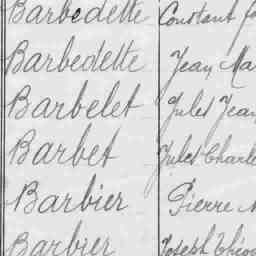 Barbedette Constant
Barbedette Jean
Barbelet Jules Jean
Barbet Jules Charle
Barbier Pierre
Barbier Joseph